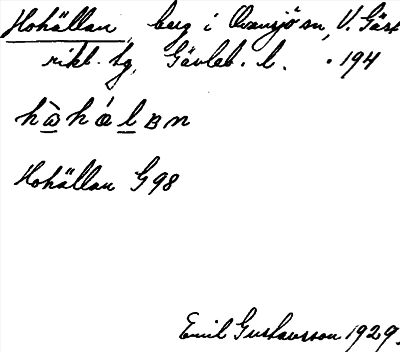 Hohällan, berg i Ovansjö sn, V. Gäst
rikl. tg, Gävleb. l. . 194
Hohällan G 98
Emil Gustavsson 1929.